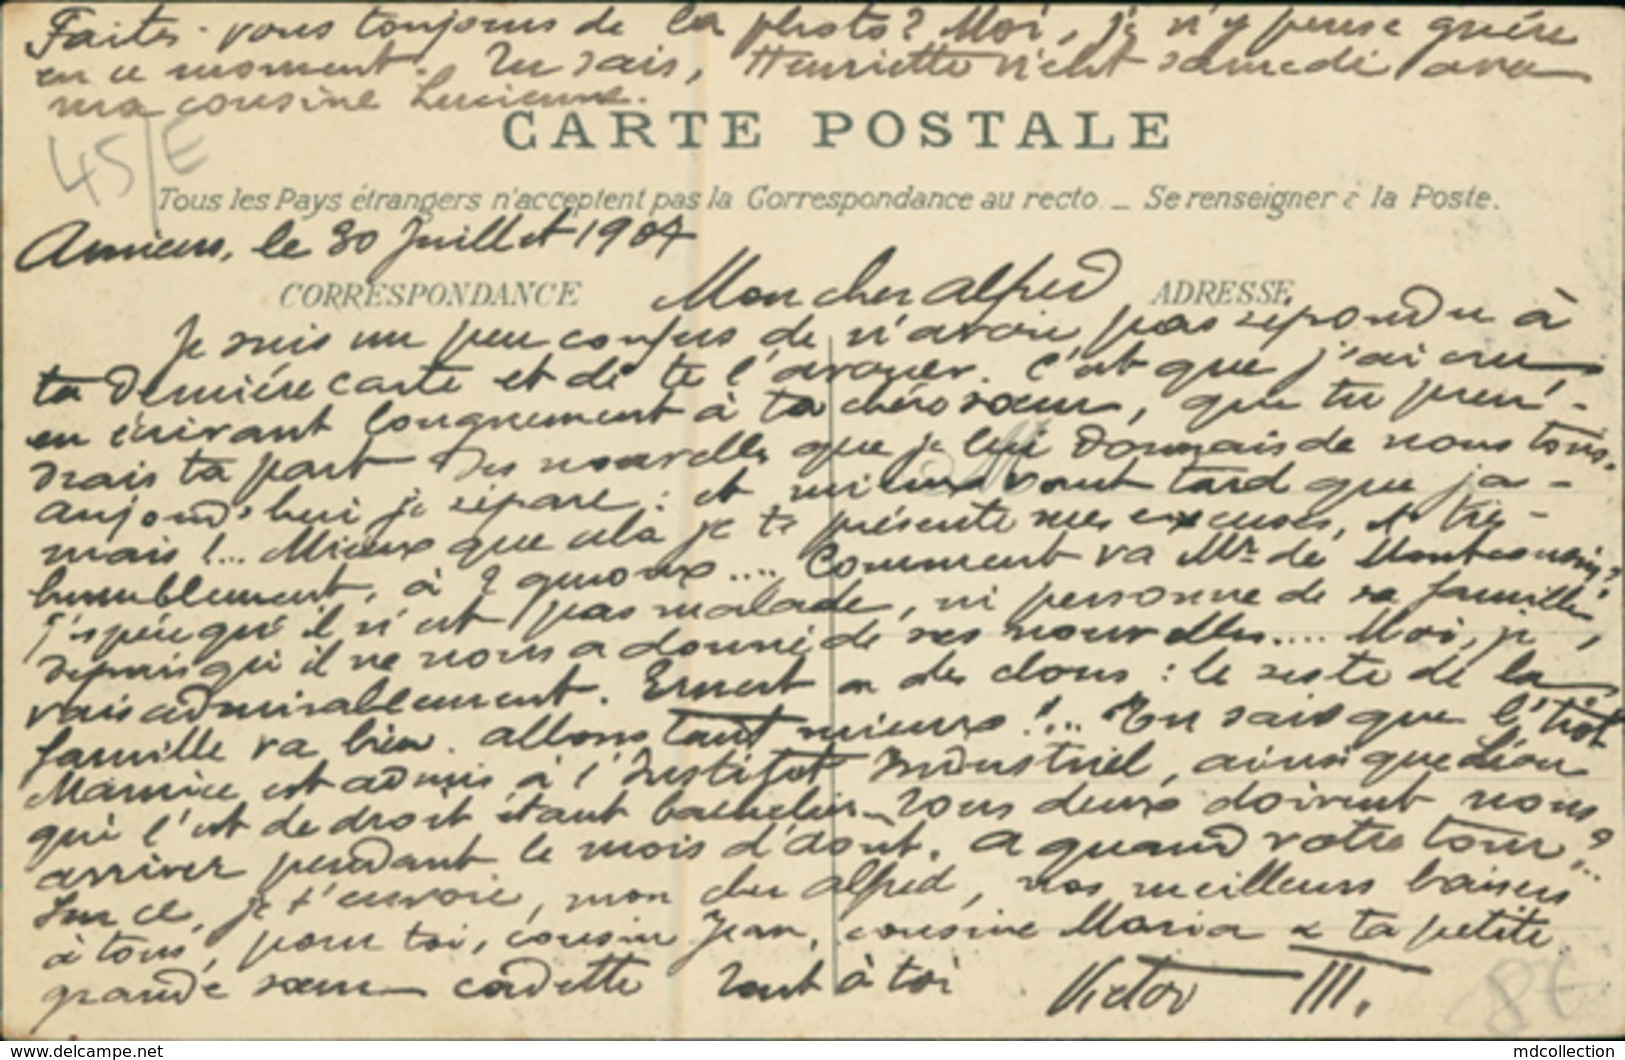 Faites-vous toujours de la photo? Moi, je n'y pense guère
en ce moment. Tu sais, Henriette vient samedi avec
ma cousine Lucienne.
CARTE POSTALE
45/E
Tous les Pays étrangers n'acceptent pas la Correspondance au recto. _ Se renseigner à la Poste.
Amiens, le 30 Juillet 1904
CORRESPONDANCE Mon cher Alfred ADRESSE
Je suis un peu confus de n'avoir pas répondu à
ta dernière carte et de te l'avouer. C'est que j'ai cru
en écrivant longuement à ta chère sœur, que tu pren-
drais ta part des nouvelles que je lui donnais de nous tous.
Aujourd'hui je répare : et mieux vaut tard que ja-
mais!... Mieux que cela je te présente mes excuses, et très-
humblement, à 2 genoux.... Comment va Mr de
J'espère qu'il n'est pas malade, ni personne de sa famille,
depuis qu'il ne nous a donné de ses nouvelles.... Moi, je
vais admirablement. Ernest a des clous : le reste de la
famille va bien. Allons tant mieux!... Tu sais que
Maurice est admis à l'Institut Industriel, ainsi que Léon
qui l'est de droit étant bachelier. Tous deux doivent nous
arriver pendant le mois d'août. A quand votre tour?...
Sur ce, je t'envoie, mon cher Alfred, nos meilleurs baisers
à tous, pour toi, cousin Jean, cousine Maria & ta petite
grande sœur cadette Tout à toi Victor III.
8€
mdcollection
www.delcampe.net